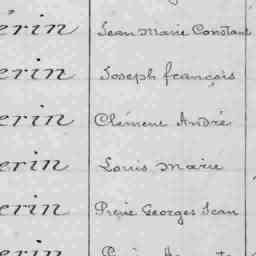 érin Jean Marie Constant
erin Joseph françois
erin Clément André
erin Louis Marie
erin Georges Jean
erin